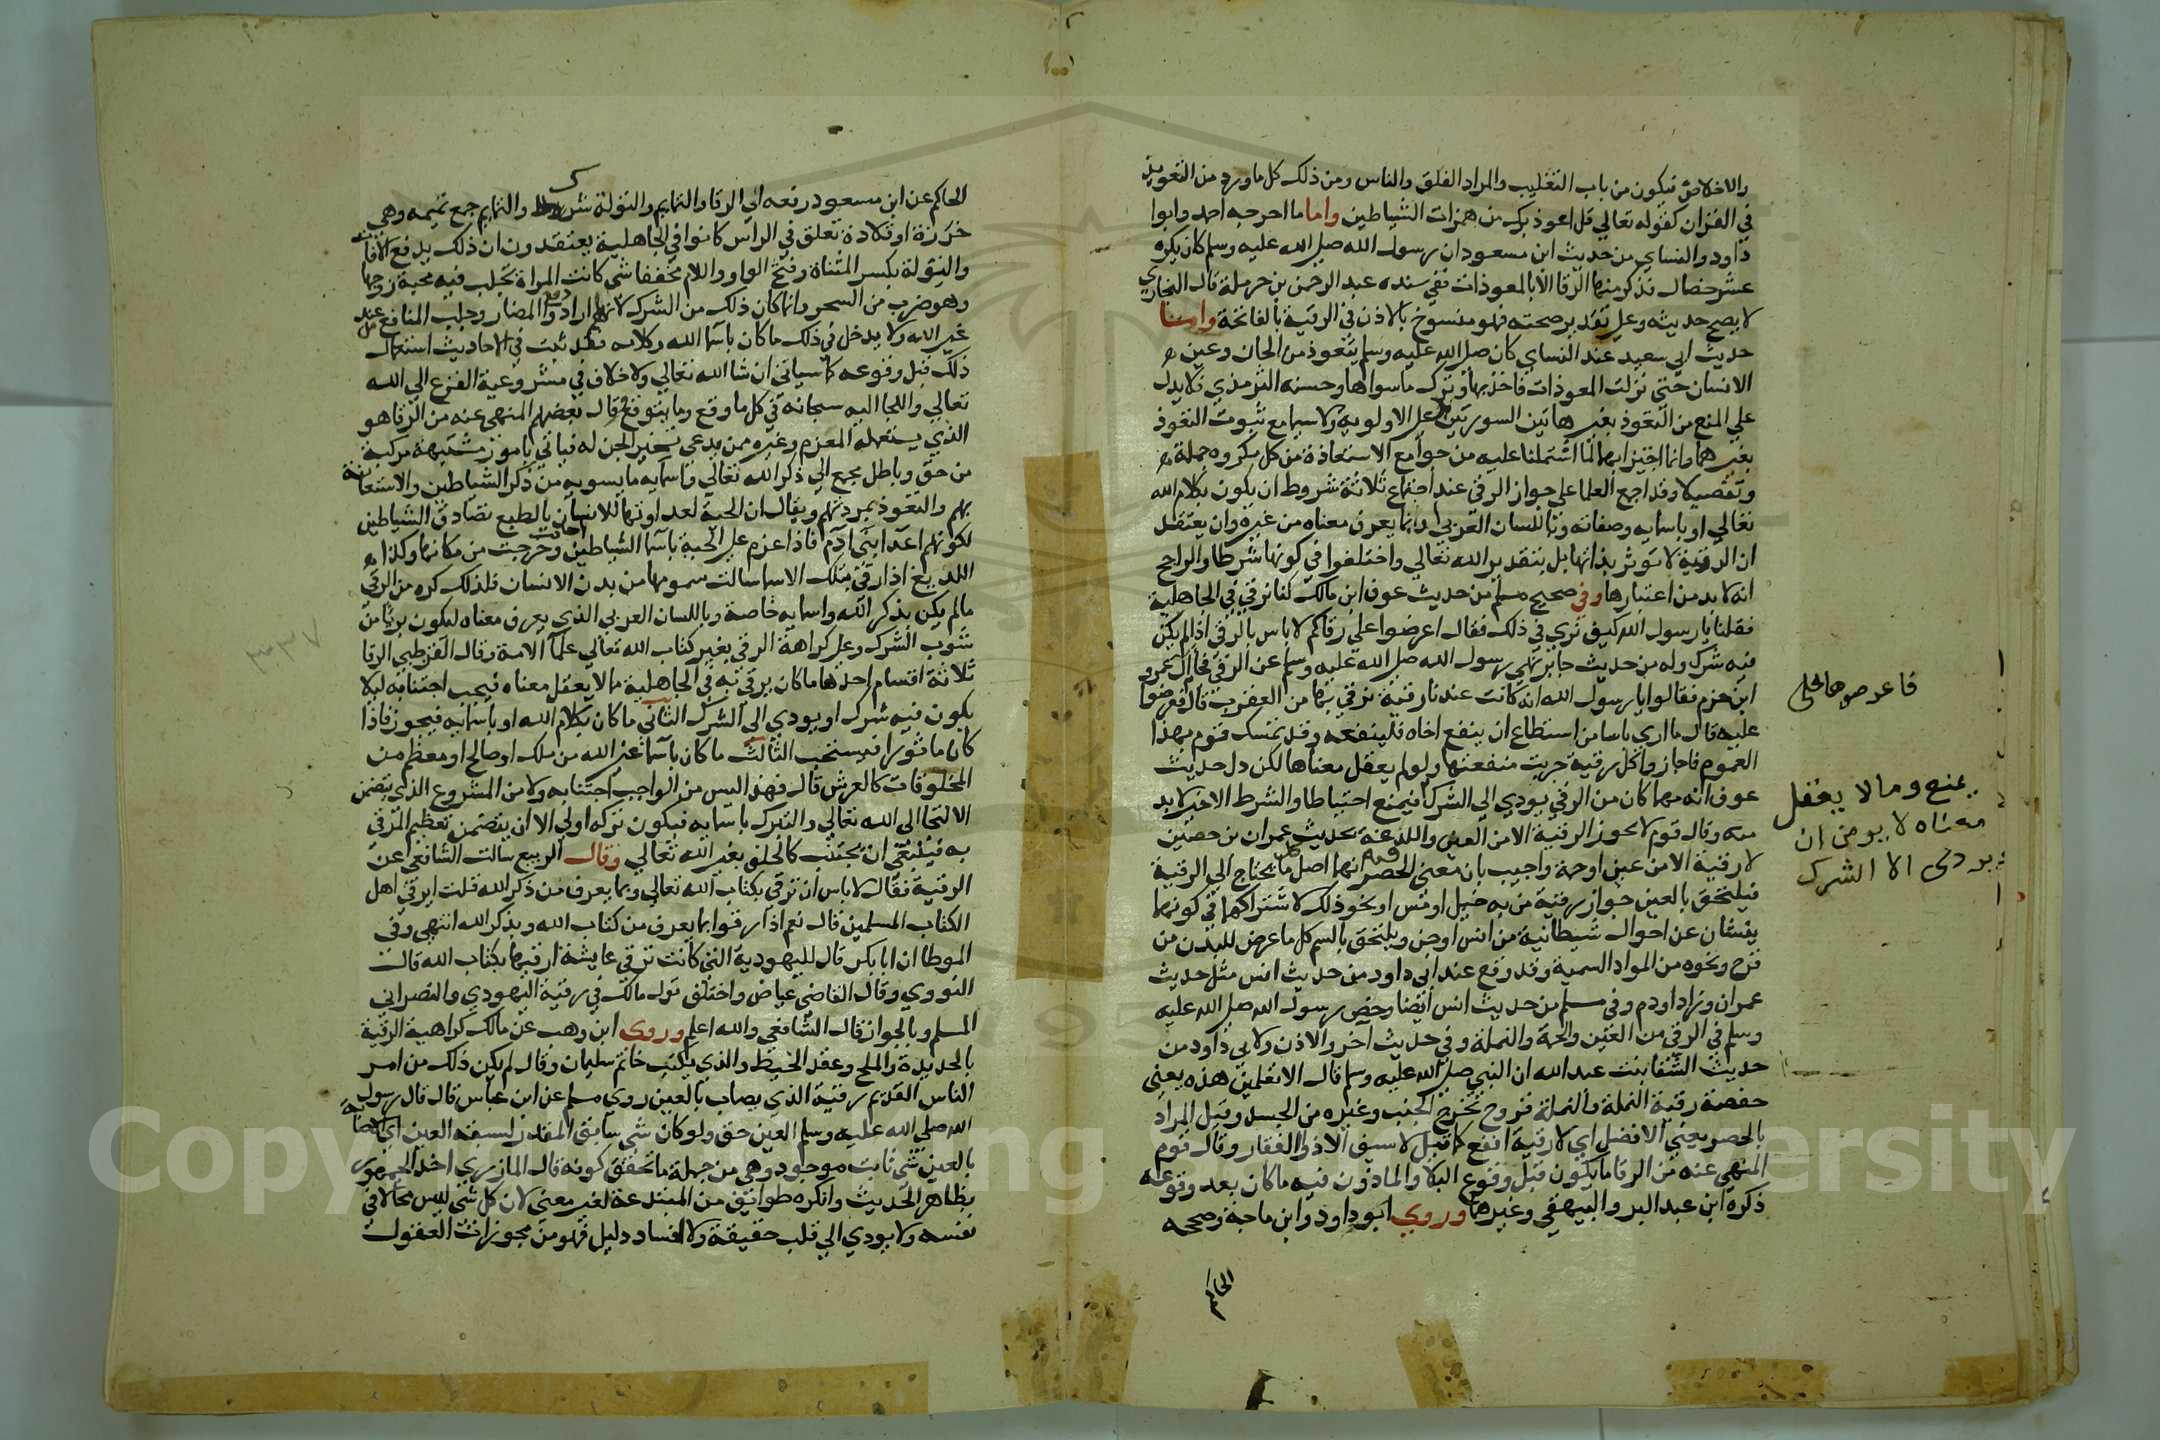 والاخلاص فيكون من باب التغليب والمراد الفلق والناس ومن ذلك كل ما ورد من التعويذ
في القران كقوله تعالي قل اعوذ بك من همزات الشياطين واما ما اخرجه احمد وابوا
داود والنساي من حديث ابن مسعود ان رسول الله صلى الله عليه وسلم كان يكره
عشر خصال فذكر منها الرقا الا بالمعوذات ففي سنده عبد الرحمن بن حرملة قال البخاري
لا يصح حديثه وعلي تقدير صحته فهو منسوخ بالاذن في الرقية بالفاتحة واما
حديث ابي سعيد عند النساي كان صلى الله عليه وسلم يتعوذ من الجان وعين
الانسان حتى نزلت المعوذات فاخذ بها وترك ما سواها وحسنه الترمذي فلا يدل
علي المنع من التعوذ بغير هاتين السورتين بل علي الاولوية ولا سيما مع ثبوت التعوذ
بغيرهما وانما اجتزا بهما لما اشتملتا عليه من جوامع الاستعاذة من كل مكروه جملة
وتفصيلا وقد اجمع العلما علي جواز الرقي عند اجتماع ثلاثة شروط ان يكون بكلام الله
تعالي او باسمايه وصفاته وباللسان العربي او بما يعرف معناه من غيره وان يعتقد
ان الرقية لا توثر بذاتها بل بتقدير الله تعالي واختلفوا في كونها شرطا والراجح
انه لا بد من اعتبارها وفي صحيح مسلم من حديث عوف ابن مالك كنا نرقي في الجاهلية
فقلنا يا رسول الله كيف ترى في ذلك فقال اعرضوا علي رقاكم لا باس بالرقي اذا لم يكن
فيه شرك وله من حديث جابر نهي رسول الله صلى الله عليه وسلم عن الرقي فجا ال عمرو
ابن حزم فقالوا يا رسول الله انه كانت عندنا رقية نرقي بها من العقرب قال فعرضوا
عليه قال ما اري باسا من استطاع ان ينفع اخاه فلينفعه وقد تمسك قوم بهذا
العموم فاجازوا كل رقية جربت منفعتها ولو لم يعقل معناها لكن دل حديث
عوف انه مهما كان من الرقي يودي الي الشرك فيمنع احتياطا والشرط الاخير لا بد
منه وقال قوم لا تجوز الرقية الا من العين واللدغة بحديث عمران بن حصين
لا رقية الا من عين او حمة واجيب بان معني الحصر فيه انها اصل كل ما يحتاج الي الرقية
فيلتحق بالعين جواز رقية من به خبل او مس او نحو ذلك لاشتراكهما في كونهما
ينشئان عن احوال شيطانية من انس او جن ويلتحق بالسم كل ما عرض للبدن من
قرح ونحوه من المواد السمية وقد وقع عند ابي داود من حديث انس مثل حديث
عمران وزاد او دم وفي مسلم من حديث انس ايضا رخص رسول الله صلى الله عليه
وسلم في الرقي من العين والحمة والنملة وفي حديث اخر والاذن ولابي داود من
حديث الشفا بنت عبد الله ان النبي صلى الله عليه وسلم قال الا تعلمين هذه يعني
حفصة رقية النملة والنملة قروح تخرج بالجنب وغيره من الجسد وقيل المراد
بالحصر يعني الافضل اي لا رقية انفع كما قيل لا سيف الا ذو الفقار وقال قوم
المنهي عنه من الرقا ما يكون قبل وقوع البلا والماذون فيه ما كان بعد وقوعه
ذكره ابن عبد البر والبيهقي وغيرهما وروي ابو داود وابن ماجة وصححه
الحاكم
فاعرضوها علي
يمنع وما لا يعقل
معناه لا يومن ان
يودى الا الشرك
الحاكم عن ابن مسعود رفعه ان الرقا والتمايم والتولة شرك والتمايم جمع تميمه وهي
خرزة او قلادة تعلق في الراس كانوا في الجاهلية يعتقدون ان ذلك يدفع الافات
والتولة بكسر المثناة وفتح الواو واللام مخففا شي كانت المراة تجلب فيه محبة زوجها
وهو ضرب من السحر وانما كان ذلك من الشرك لانهم ارادوا دفع المضار وجلب المنافع من عند
غير الله ولا يدخل في ذلك ما كان باسما الله وكلامه فقد ثبت في الاحاديث استعمال
ذلك قبل وقوعه كما سياتي ان شا الله تعالي ولا خلاف في مشروعية الفزع الي الله
تعالي واللجا اليه سبحانه في كل ما وقع وما يتوقع وقال بعضهم المنهي عنه من الرقا هو
الذي يستعمله المعزم وغيره ممن يدعي تسخير الجن له فياتي بامور مشتبهة مركبة
من حق وباطل يجمع الي ذكر الله تعالي واسمايه ما يسويه من ذكر الشياطين والاستعانة
بهم والتعوذ بمردتهم ويقال ان الحية لعداوتها للانسان بالطبع تصادق الشياطين
لكونهم اعدا بني ادم فاذا عزم علي الحية باسما الشياطين اجابت وخرجت من مكانها وكذا
اللديغ اذا رقي بتلك الاسما سالت سمومها من بدن الانسان فلذلك كره من الرقي
ما لم يكن بذكر الله واسمايه خاصة وباللسان العربي الذي يعرف معناه ليكون بريا من
شوب الشرك وعلي كراهة الرقي بغير كتاب الله تعالي علما الامة وقال القرطبي الرقا
ثلاثة اقسام احدها ما كان يرقي به في الجاهلية مما لا يعقل معناه فيجب اجتنابه ليلا
يكون فيه شرك او يودي الى الشرك الثاني ما كان بكلام الله او باسمايه فيجوز فاذا
كان ماثورا فيستحب الثالث ما كان باسما غير الله من ملك او صالح او معظم من
المخلوقات كالعرش قال فهذا ليس من الواجب اجتنابه ولا من المشروع الذي يتضمن
الالتجا الى الله تعالي والتبرك باسمايه فيكون تركه اولي الا ان يتضمن تعظيم المرقي
به فينبغي ان يجتنب كالحلف بغير الله تعالي وقال الربيع سالت الشافعي عن
الرقية فقال لا باس ان ترقي بكتاب الله تعالي وبما يعرف من ذكر الله قلت ايرقي اهل
الكتاب المسلمين قال نعم اذا رقوا بما يعرف من كتاب الله وبذكر الله انتهي وفي
الموطا ان ابا بكر قال لليهودية التي كانت ترقي عايشة ارقيها بكتاب الله قال
النووي وقال القاضي عياض واختلف قول مالك في رقية اليهودي والنصراني
المسلم وبالجواز قال الشافعي والله اعلم وروى ابن وهب عن مالك كراهية الرقية
بالحديدة والملح وعقد الخيط والذي يكتب خاتم سليمان وقال لم يكن ذلك من امر
الناس القديم رقية الذي يصاب بالعين روي مسلم عن ابن عباس قال قال رسول
الله صلي الله عليه وسلم العين حق ولو كان شي سابق المقدر لسبقه العين اي الاصابة
بالعين شي ثابت موجود وهي من جملة ما تحقق كونه قال المازري اخذ الجمهور
بظاهر الحديث وانكره طوائف من المبتدعة لغير معني لان كل شي ليس محالا في
نفسه ولا يودي الي قلب حقيقة ولا افساد دليل فهو من مجوزات العقول